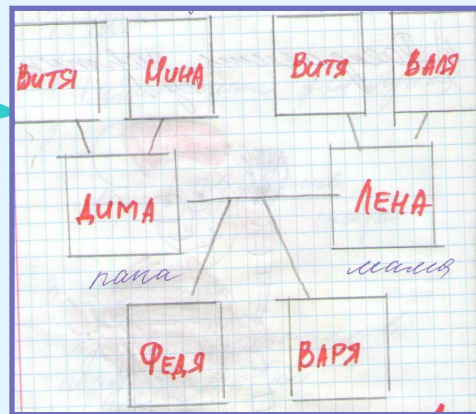 Витя Нина Витя Валя
Дима Лена
папа мама
Федя Варя